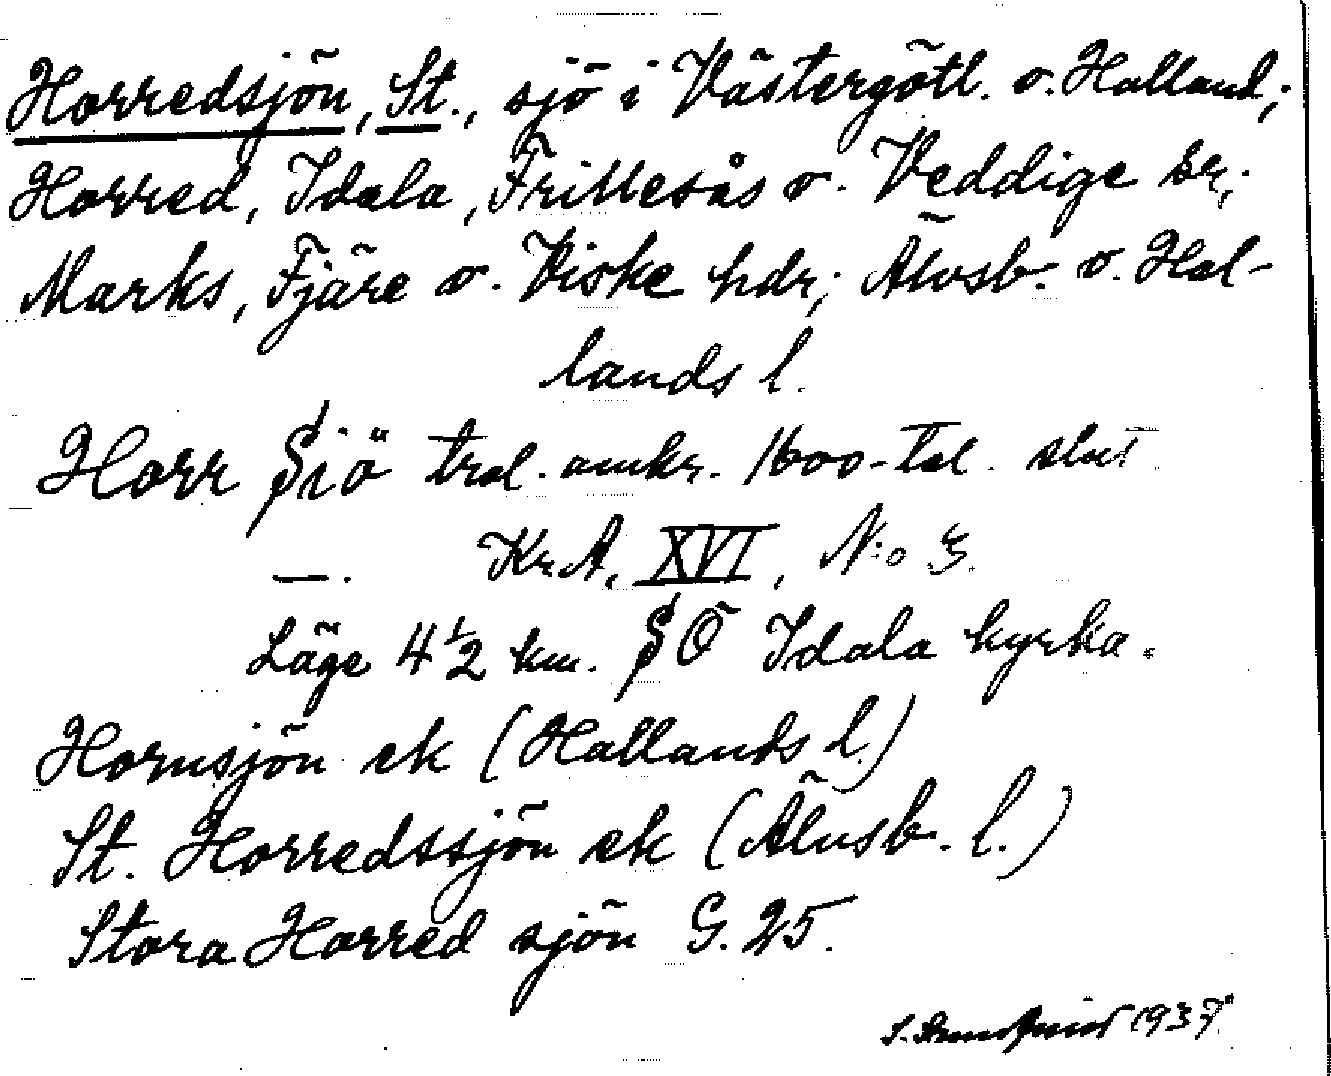 Horredsjön, St., sjö i Västergötl. o. Halland;
Horred, Idala, Frillesås o. Veddige snr;
Marks, Fjäre o. Viske hdr; Älvsb. o. Hal-
lands l.
Horr Siö trol. omkr. 1600-tal. slut
—. KrA, XVI, N:o 3.
Läge 4 1/2 km. SÖ Idala kyrka.
Hornsjön ek (Hallands l.)
St. Horredssjön ek (Älvsb. l.)
Stora Horred sjön G. 25.
1937